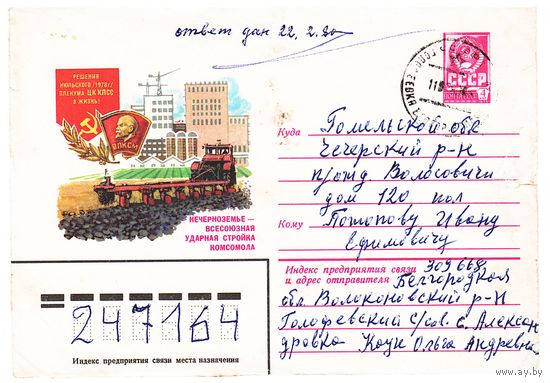 ответ дан 22, 2. 80
РЕШЕНИЯ
ИЮЛЬСКОГО /1978/
ПЛЕНУМА ЦК КПСС
В ЖИЗНЬ!
ВЛКСМ
НЕЧЕРНОЗЕМЬЕ —
ВСЕСОЮЗНАЯ
УДАРНАЯ СТРОЙКА
КОМСОМОЛА
СССР
4
Куда Гомельской обл
Чечерский р-н
п/отд Волосовичи
дом 120 пол
Кому Потапову Ивану
Ефимовичу
Индекс предприятия связи 309668
и адрес отправителя Белгородкая
обл Волоконовский р-н
Голофевский с/сов. с. Алексан
дровка Коцн Ольга Андревна
247164
Индекс предприятия связи места назначения
www.ay.by